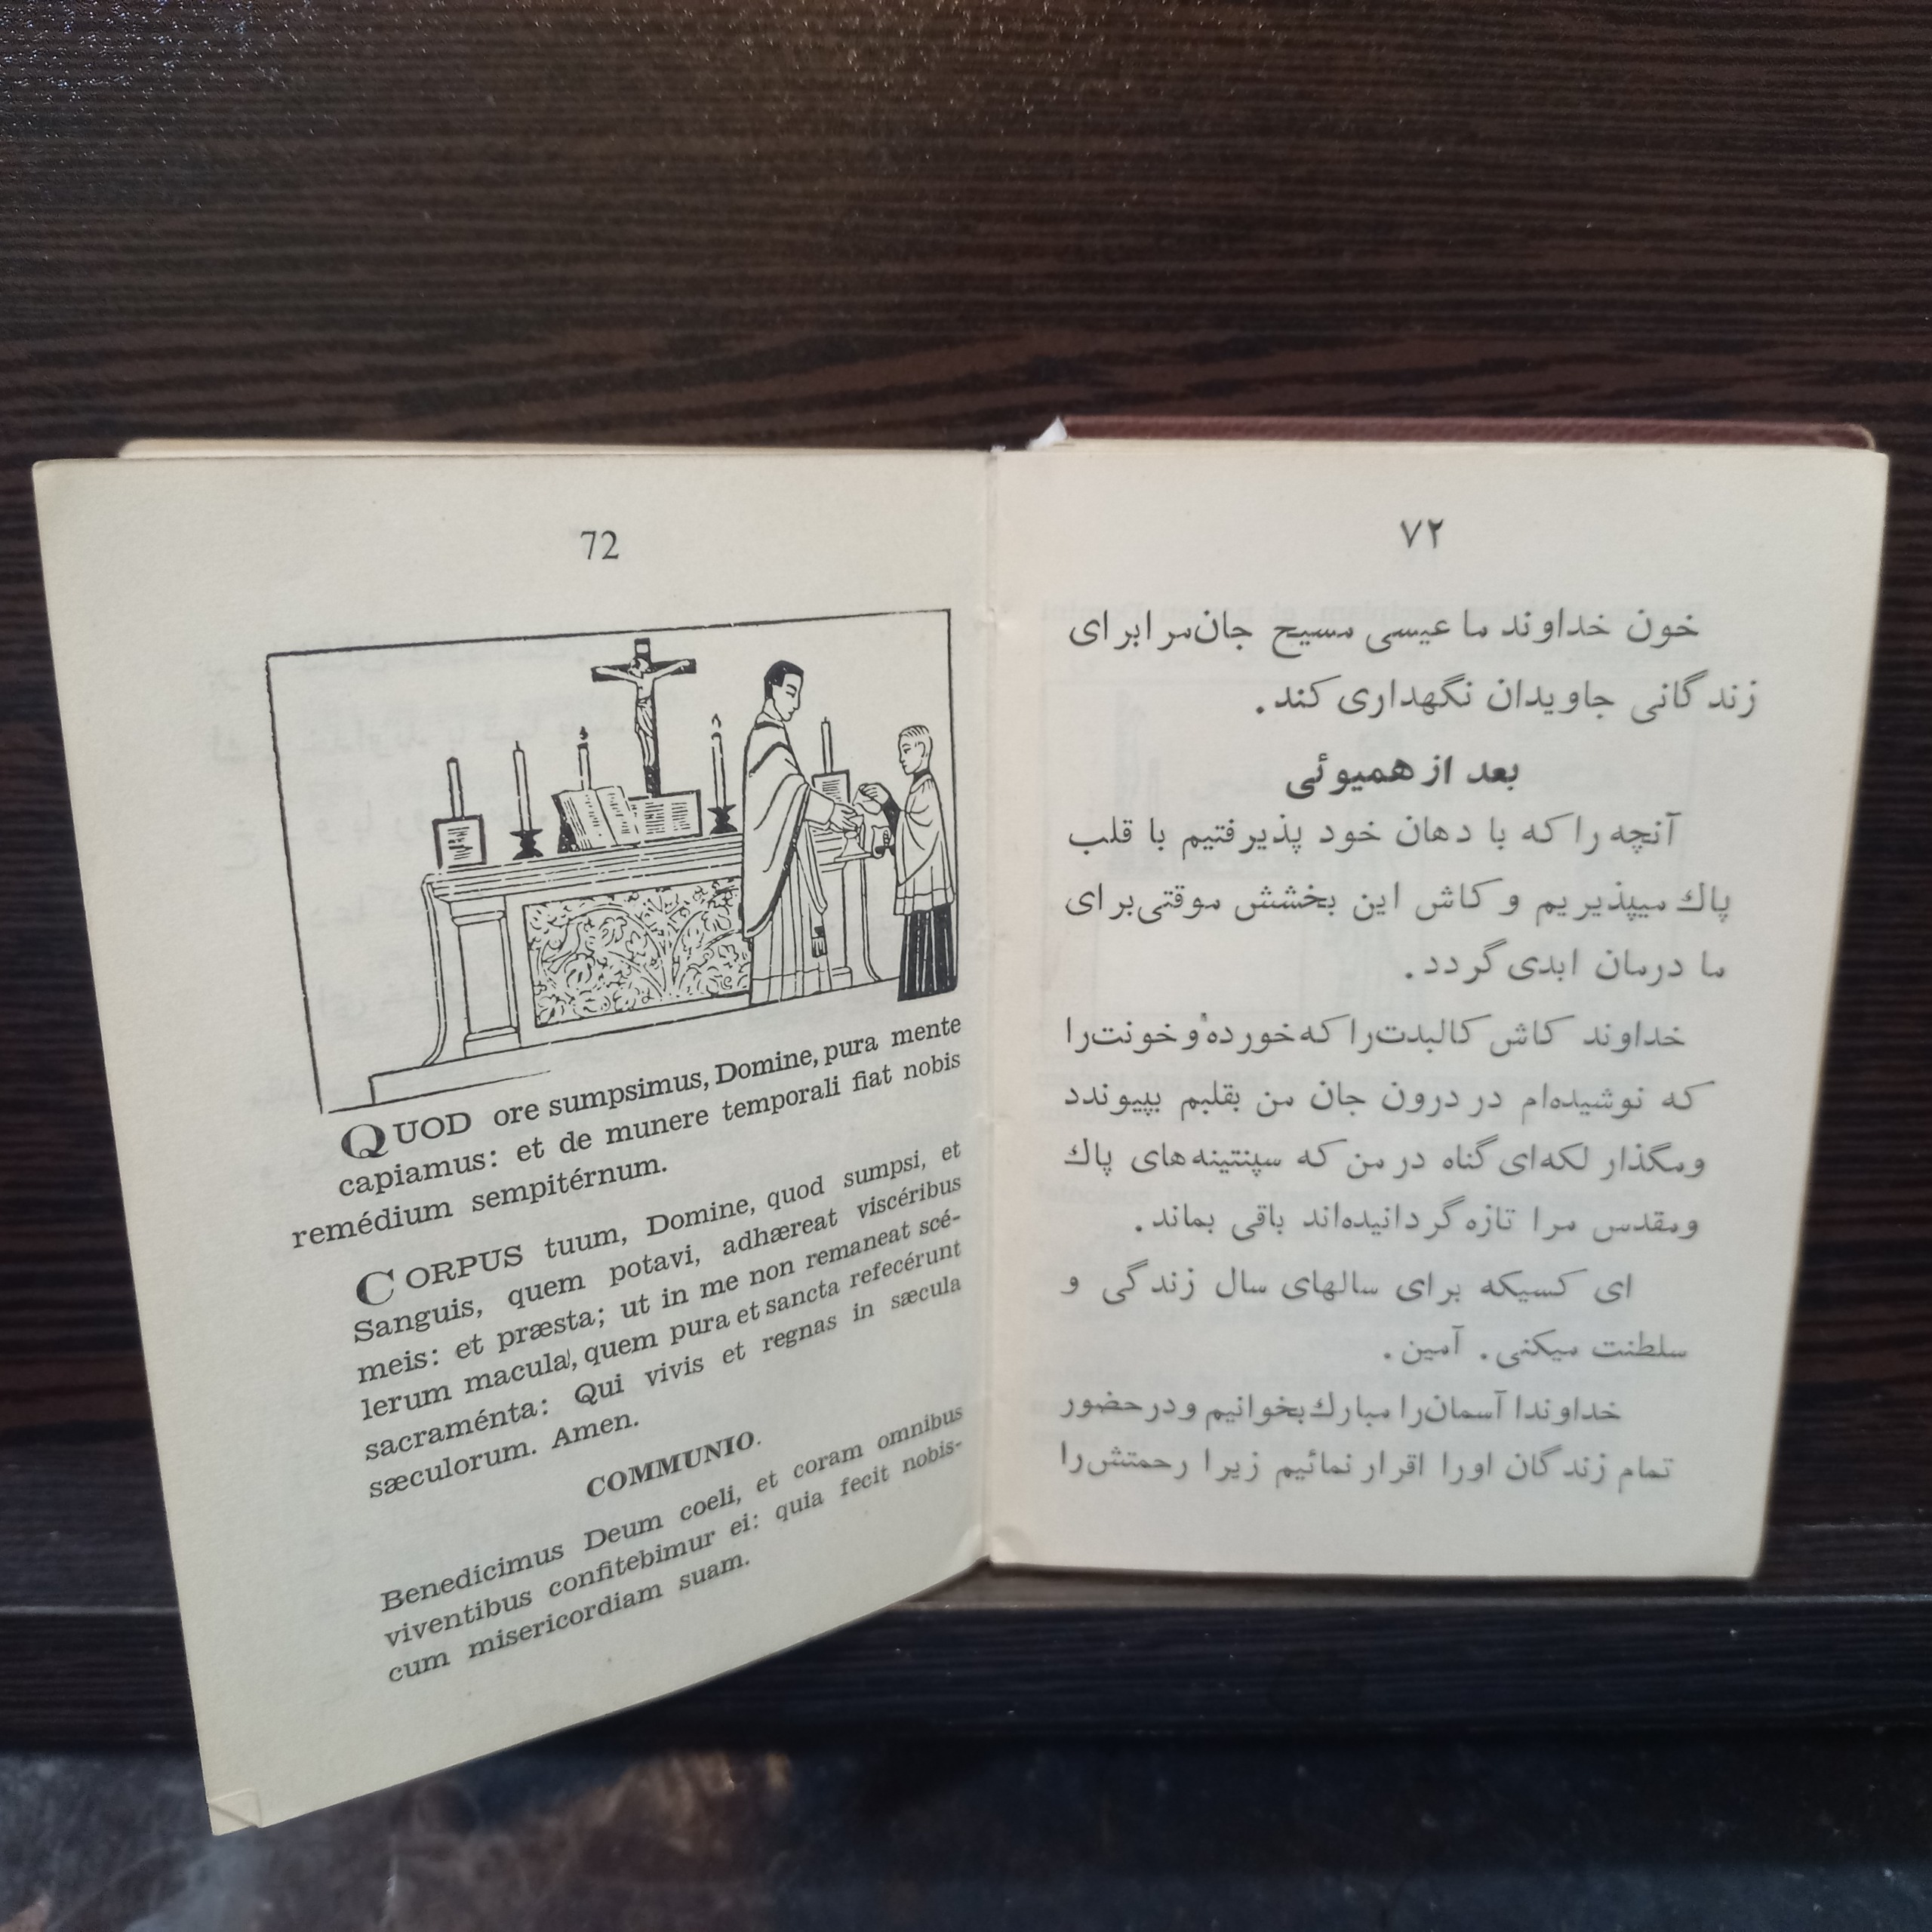 72
QUOD ore sumpsimus, Domine, pura mente
capiamus: et de munere temporali fiat nobis
remédium sempitérnum.
CORPUS tuum, Domine, quod sumpsi, et
Sanguis, quem potavi, adhæreat viscéribus
meis: et præsta; ut in me non remaneat scé-
lerum macula, quem pura et sancta refecérunt
sacraménta: Qui vivis et regnas in sæcula
sæculorum. Amen.
COMMUNIO.
Benedícimus Deum coeli, et coram omnibus
viventibus confitebimur ei: quia fecit nobis-
cum misericordiam suam.
۷۲
خون خداوند ما عیسی مسیح جان‌مرا برای
زندگانی جاویدان نگهداری کند.
بعد از همیوئی
آنچه را که با دهان خود پذیرفتیم با قلب
پاك میپذیریم و کاش این بخشش موقتی‌برای
ما درمان ابدی گردد.
خداوند کاش کالبدت‌را که‌خورده‌ٔو خونت‌را
که نوشیده‌ام در درون جان من بقلبم بپیوندد
ومگذار لکه‌ای گناه در من که سپنتینه‌های پاك
ومقدس مرا تازه گردانیده‌اند باقی بماند.
ای کسیکه برای سالهای سال زندگی و
سلطنت میکنی. آمین.
خداوندا آسمان‌را مبارك بخوانیم ودرحضور
تمام زندگان اورا اقرار نمائیم زیرا رحمتش‌را